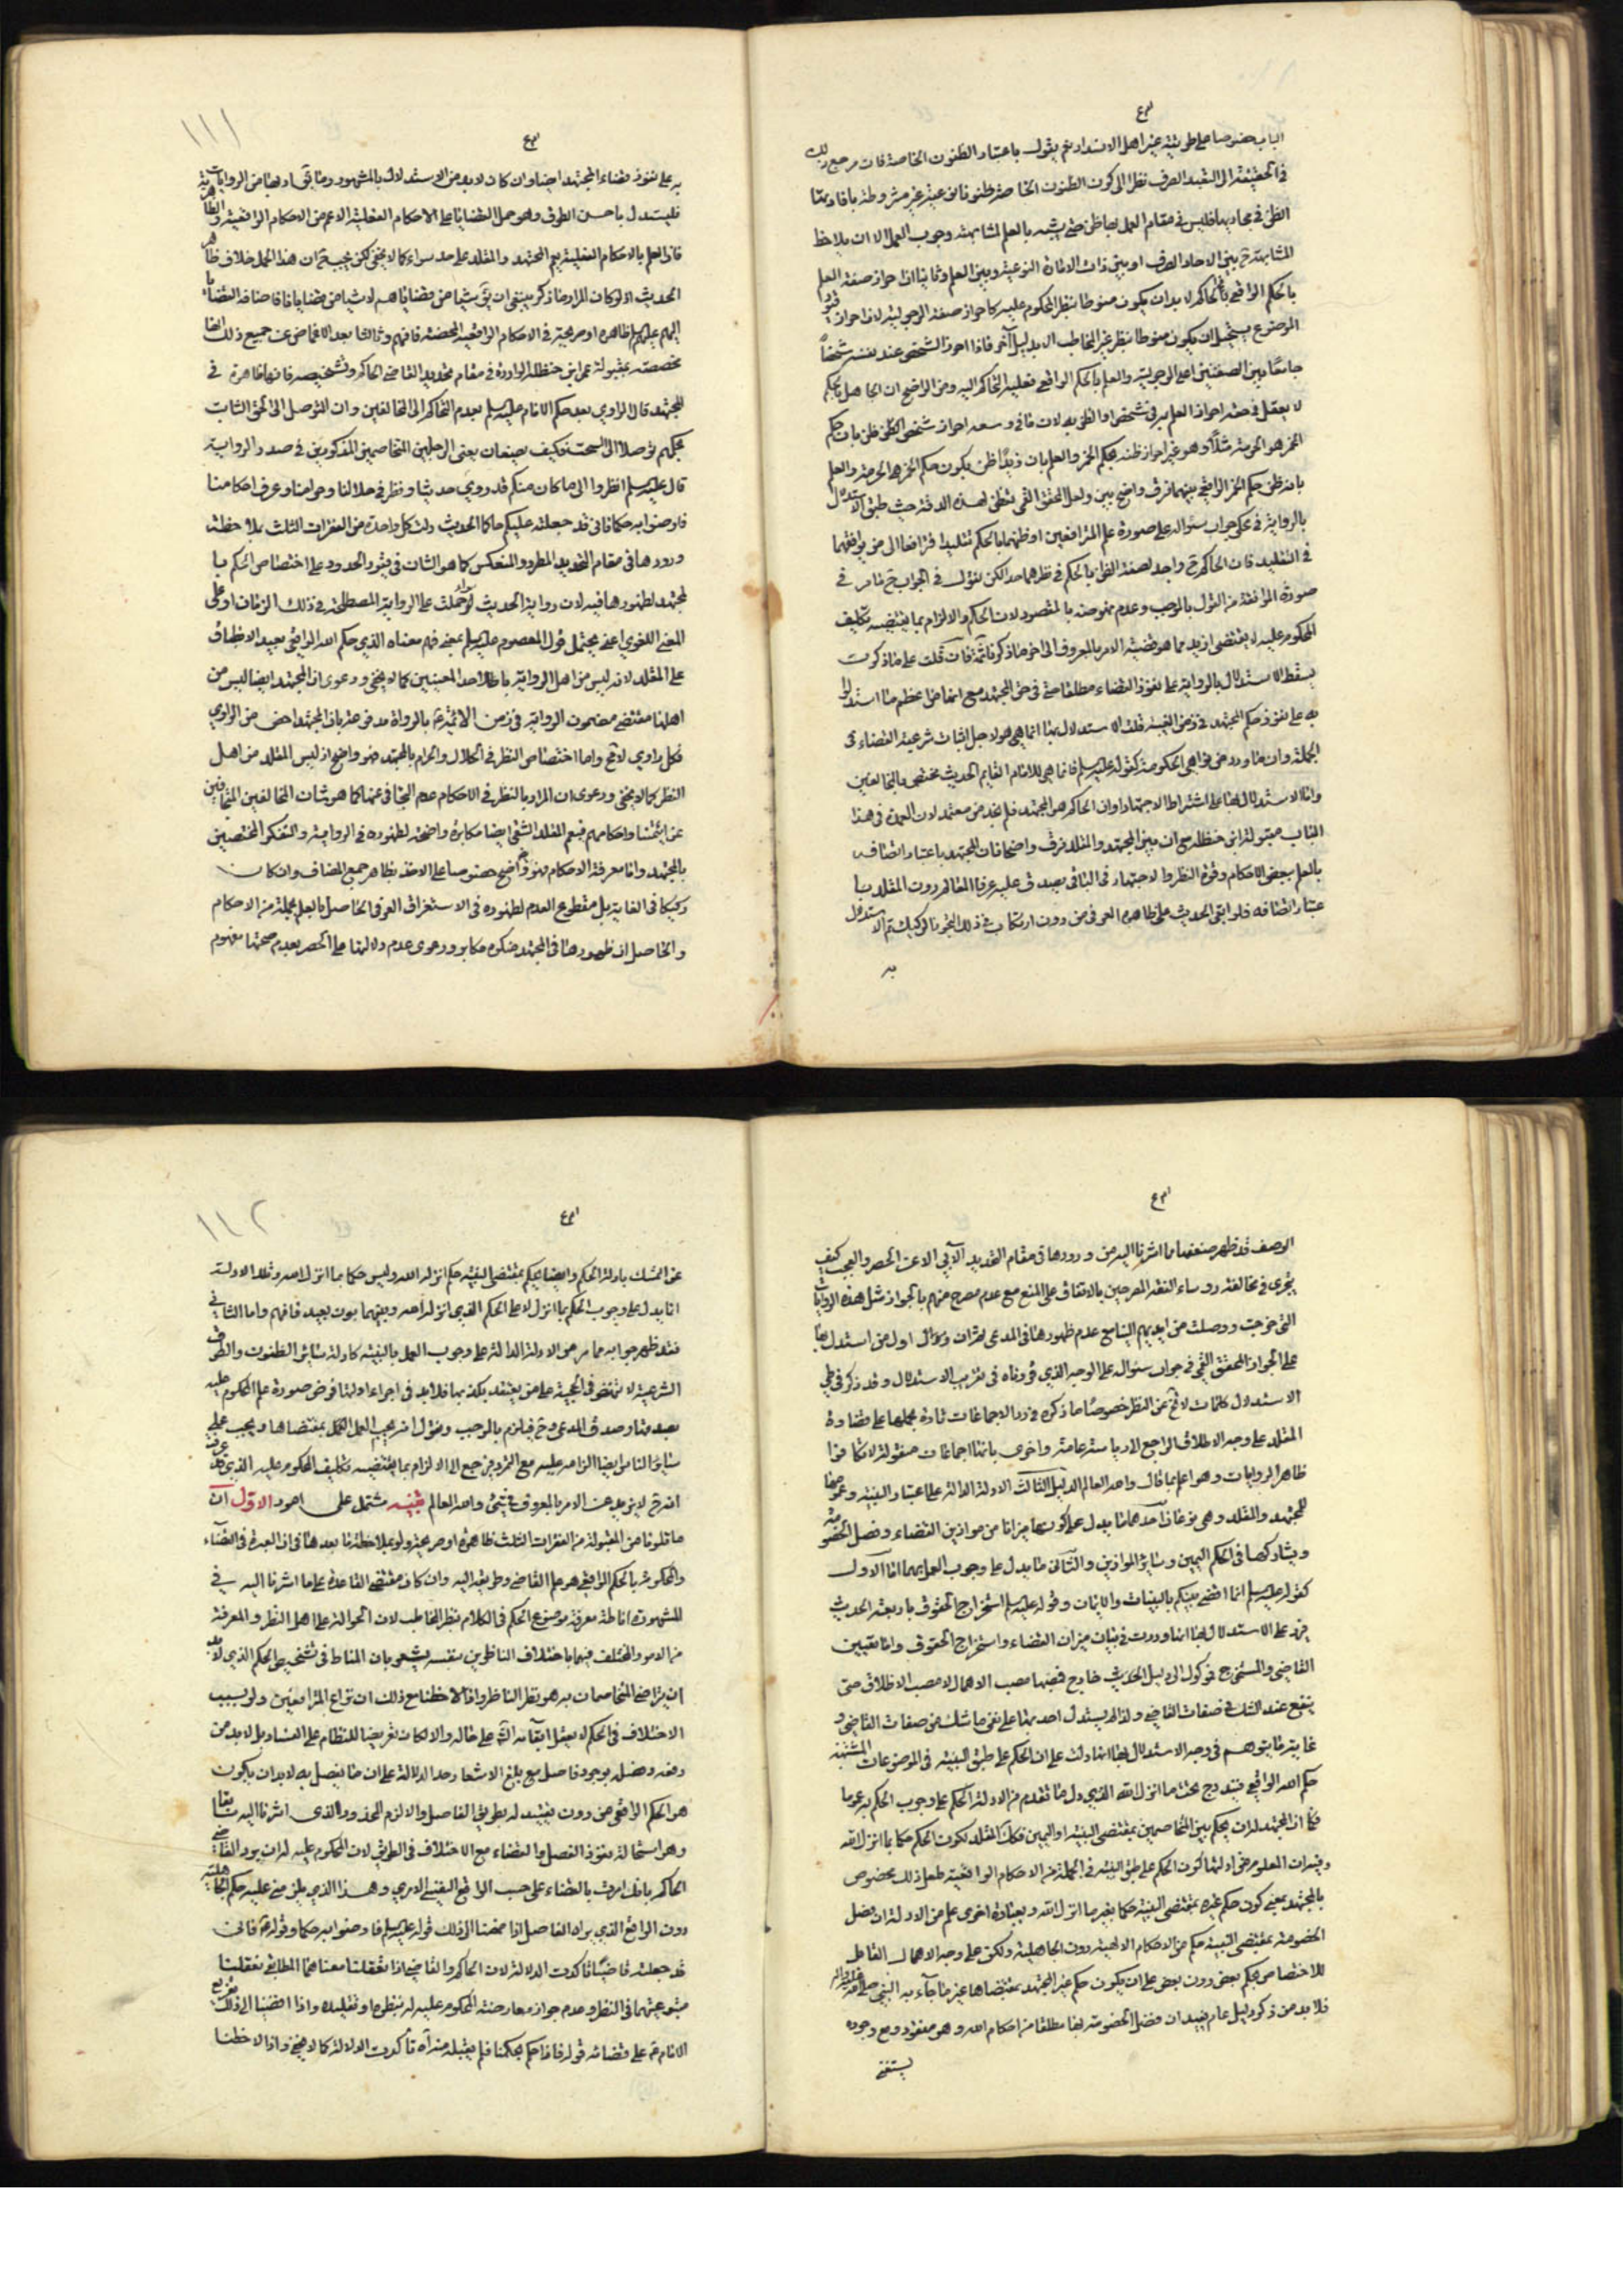 الباب خصوصا على طريقة غير اهل الانسداد ثم يقول باعتبار الظنون الخاصة فان مرجع ذلك
في الحقيقة الى التعبد الصرف نظرا الى كون الظنون الخاصة ظنونا نوعية غير مشروطة بافادتها
الظن في مجاريها فليس في مقام العمل بها ظن حتى يشبه بالعلم لمشابهته وجوب العمل الا ان يلاحظ
المشابهة بين الاحاد الصرف او بين ذات الامارة النوعية وبين العلم وثانيا ان احراز صفة العلم
بالحكم الواقعي في الحاكم لا بد ان يكون منوطا بنظر المحكوم عليه كاحراز صفة الرجولية لان احراز قيود
الموضوع يستحيل ان يكون منوطا بنظر غير المخاطب الا بدليل آخر فاذا احرز الشخص عند نفسه شخصا
جامعا بين الصفتين اعني الرجولية والعلم بالحكم الواقعي فعليه التحاكم اليه ومن الواضح ان الجاهل بالحكم
لا يعقل في حقه احراز العلم به في شخص او الظن به لان ما في وسعه احراز شخص الظن ظن بان حكم
الخمر هو الحرمة مثلا وهو غير احراز ظنه بحكم الخمر والعلم بان زيدا ظن بكون حكم الخمر هي الحرمة والعلم
بانه ظن حكم الخمر الواقعي بينهما فرق واضح بين ولعل المحقق القمي تفطن لهذه الدقة حيث طبق الاستدلال
بالرواية في محكي جواب سؤاله على صورة علم المترافعين او ظنهما بالحكم تقليدا فترافعا الى من يوافقهما
في التقليد فان الحاكم ح واجد لصفة الظن بالحكم في نظرهما هذا لكن نقول في الجواب ح ما مر في
صورة الموافقة من القول بالموجب وعدم نهوضه بالمقصود لان الحكم والالزام بما يقتضيه تكليف
المحكوم عليه لا يقتضي ازيد مما هو قضية الامر بالمعروف الى اخر ما ذكرنا ثمة فان قلت على ما ذكرت
يسقط الاستدلال بالرواية على نفوذ القضاء مطلقا حتى في حق المجتهد مع انها من اعظم ما استدلوا
به على نفوذ حكم المجتهد في زمن الغيبة قلت الاستدلال بها انما هو لاجل اثبات شرعية القضاء في
الجملة وان ما ورد من نواهي الحكومة كقوله عليه السلم فانما هي للامام القايم الحديث مختص بالمخالفين
واما الاستدلال بها على اشتراط الاجتهاد وان الحاكم هو المجتهد فلم نجد من معتمد لان العمدة في هذا
الباب مقبولة ابن حنظلة مع ان بين المجتهد والمقلد فرق واضحا فان المجتهد باعتبار اتصافه
بالعلم ببعض الاحكام وقوة النظر والاجتهاد في الباقي يصدق عليه عرفا العالم دون المقلد با
عتبار اتصافه فلو ابقي الحديث على ظاهره العرفي من دون ارتكاب في ذلك التجوز الركيك تم الاستدلال
به
١١١
به على نفوذ قضاء المجتهد ايضا وان كان لا بد من الاستدلال بالمشهور وما بقي ادلتها من الروايات
فليستدل باحسن الطرق وهو حمل القضايا على الاحكام الفعلية الاعم من الاحكام الواقعية والظاهرية
فان العلم بالاحكام الفعلية يعم المجتهد والمقلد على حد سواء كما لا يخفى لكن يجب ح ان هذا الحمل خلاف ظاهر
الحديث اذ لو كان المراد ما ذكر ينبغي ان يق شيئا من قضاياهم لا شيئا من قضايانا فان اضافة القضايا
اليهم عليهم السلم ظاهرة او صريحة في الاحكام الواقعية المحضة فافهم وثالثا بعد الاغماض عن جميع ذلك انها
مخصصة بمقبولة عمر ابن حنظلة الواردة في مقام تحديد القاضي الحاكم وتشخيصه فانها ظاهرة في
المجتهد قال الراوي بعد حكم الامام عليه السلم بعدم التحاكم الى المخالفين وان التوصل الى الحق الثابت
بحكمهم توصلا الى السحت فكيف يصنعان يعني الرجلين المتخاصمين المذكورين في صدر الرواية
قال عليه السلم انظروا الى من كان منكم قد روي حديثنا ونظر في حلالنا وحرامنا وعرف احكامنا
فارضوا به حكما فاني قد جعلته عليكم حاكما الحديث دلت كل واحدة من الفقرات الثلث بملاحظة
ورودها في مقام التحديد المطرد والمنعكس كما هو الشان في قيود الحدود على اختصاص الحكم با
لمجتهد لظهورها فيه لان رواية الحديث لو حملت على الرواية المصطلحة في ذلك الزمان او على
المعنى اللغوي اعني محتمل قول المعصوم عليه السلم بمعنى فهم معناه الذي حكم الله الواقعي بعيد الانطباق
على المقلد لانه ليس من اهل الرواية باطلا احد المعنيين كما لا يخفى ودعوى ان المجتهد ايضا ليس من
اهلها مقتضى مضمون الرواية في زمن الائمة ع بالرواة مدفوعة بان المجتهد اخص من الراوي
فكل راوي لا مج واما اختصاص النظر في الحلال والحرام بالمجتهد فهو واضح اذ ليس المقلد من اهل
النظر كما لا يخفى ودعوى ان المراد بالنظر في الاحكام عدم التجافي عنها كما هو شان المخالفين المتجافين
عن ائمتنا واحكامهم فيعم المقلد الشقي ايضا مكابرة واضحة لظهوره في الروية والتفكر المختصين
بالمجتهد واما معرفة الاحكام فهو واضح خصوصا على الاخذ بظاهر جمع المضاف وان كان
ركيكا في الغاية بل مقطوع العدم لظهوره في الاستغراق العرفي الحاصل بالعلم بجملة من الاحكام
والحاصل ان ظهورها في المجتهد منكره مكابر ودعوى عدم دلالتها على الحصر بعدم صحتها مفهوم
الوصف قد ظهر ضعفها مما اشرنا اليه من ورودها في مقام التحديد الآبي الا عن الحصر والعجب كيف
يجري في مخالفة رؤساء الفقه المصرحين بالاتفاق على المنع مع عدم مصرح منهم بالجواز مثل هذه الروايات
التي خرجت ووصلت من ايديهم الينا مع عدم ظهورها في المدعى لقران وسؤال اول من استدل بها
على الجواز المحقق القمي في جواب سؤال على الوجه الذي قررناه في تقريب الاستدلال وقد ذكر في طي
الاستدلال كلمات لا تخ عن النظر خصوصا ما ذكره في رد الاجماعات تارة بحملها على قضاوة
المقلد على وجه الاطلاق الراجع الى رياسة عامة واخرى بانها اجماعات منقولة لا تكافؤا
ظاهر الروايات وهو اعلم بما قال والله العالم الدليل الثالث الادلة الدالة على اعتبار البينة وعمومها
للمجتهد والمقلد وهي نوعان احدهما ما يدل على كونها ميزانا من موازين القضاء وفصل الخصومة
ويشاركها في الحكم اليمين وساير الموازين والثاني ما يدل على وجوب العمل بها اما الاول
كقوله عليه السلم انما اقضي بينكم بالبينات والايمان وقوله عليه السلم استخراج الحقوق باربعة الحديث
فيرد على الاستدلال بها انها وردت في بيان ميزان القضاء واستخراج الحقوق واما تعيين
القاضي والمستخرج فموكول الى دليل خارج فمصبها مصب الاهمال لا مصب الاطلاق حتى
ينفع عند الشك في صفات القاضي ولذا لم يستدل احد بها على نفي ما شك من صفات القاضي و
غاية ما يتوهم في وجه الاستدلال بها انها دلت على ان الحكم على طبق البينة في الموضوعات المشتبهة
حكم الله الواقعي فيندرج تحت ما انزل الله الذي دل ما تقدم من الادلة الحكم على وجوب الحكم به عموما
فكما ان المجتهد له ان يحكم بين المتخاصمين بمقتضى البينة او اليمين فكذا المقلد لكون الحكم حكما بما انزل الله
وفيه ان المعلوم من ادلتها كون الحكم على طبق البينة في الجملة من الاحكام الواقعية فلعل ذلك مخصوص
بالمجتهد بمعنى كون حكم غيره بمقتضى البينة حكما بغير ما انزل الله وبعبارة اخرى علم من الادلة ان فصل
الخصومة بمقتضى البينة حكم من الاحكام الالهية دون الجاهلية ولكن على وجه الاهمال القابل
للاختصاص بحكم بعض دون بعض على ان يكون حكم غير المجتهد بمقتضاها غير ما جاء به النبي صلى الله عليه واله
فلا بد من ذكر دليل عام يفيد ان فصل الخصومة بها مطلقا من احكام الله وهو مفقود ومع وجوده
يستغنى
١١٢
عن التمسك بادلة الحكم وايضا الحكم بمقتضى البينة حكم انزله الله وليس حكما بما انزل الله وتلك الادلة
انما يدل على وجوب الحكم بما انزل لا على الحكم الذي انزله الله وبينهما بون بعيد فافهم واما الثاني
فقد ظهر جوابه مما مر من الادلة الدالة على وجوب العمل بالبينة كادلة ساير الظنون والطرق
الشرعية لا تنهض في الحجية على من يعتقد بكذبها فلا بد في اجراء ادلتها فرض صورة علم المحكوم عليه
بعدمها وصدق المدعي وح فيلزم بالموجب ونقول انه يجب العمل بمقتضاها ويجب على
ساير الناس ايضا الزامه عليه مع التمرد فيرجع الى الالزام بما يقتضيه تكليف المحكوم عليه الذي قد عرفت
انه ح لا يزيد عن الامر بالمعروف في شئ والله العالم تنبيه مشتمل على امور الاول ان
ما تلونا من المقبولة من الفقرات الثلث ظاهرة او صريحة ولو بملاحظة ما بعدها في ان العبرة في القضاء
والحكومة بالحكم الواقعي هو علم القاضي وطريقه اليه وان كان مقتضى القاعدة على ما اشرنا اليه في
المشهورة اناطة معرفة موضوع الحكم في الكلام بنظر المخاطب لان الحوالة على اهل النظر والمعرفة
من الامور المختلف فيها باختلاف الناظرين بنفسه يشعر بان المناط في تشخيص الحكم الذي لا بد
ان يتراضى المتخاصمان به هو نظر الناظر واذا لاحظنا مع ذلك ان نزاع المترافعين ولو بسبب
الاختلاف في الحكم لا يعقل ابقائه على حاله والا لكان تعريضا للنظام على الفساد بل لا بد من
رفعه وفصله بوجود فاصل مع بلغ الاشعار حد الدلالة على ان ما يفصل به لا بد ان يكون
هو الحكم الواقعي من دون تقييد له بطريق الفاصل والا لزم المحذور الذي اشرنا اليه سابقا
وهو استحالة نفوذ الفصل والقضاء مع الاختلاف في الطريق لان المحكوم عليه له ان يرد القاضي
الحاكم بانك امرت بالقضاء على حسب الواقع النفس الامري وهذا الذي يلزمني عليه حكم الجاهلية
دون الواقع الذي يراه الفاصل اذا ضممنا الى ذلك قوله عليه السلم فارضوا به حكما وقوله ع فاني
قد جعلته قاضيا تاكدت الدلالة لان الحاكم والقاضي اذا تعقلنا معناهما المطابقي تعقلنا
متبوعيتهما في النظر وعدم جواز معارضة المحكوم عليه له بنظره او تقليده واذا اضفنا الى ذلك تفريع
الامام ع على قضائه قوله فاذا حكم بحكمنا فلم يقبله منه آه تاكدت الدلالة كما لا يخفى واذا لاحظنا